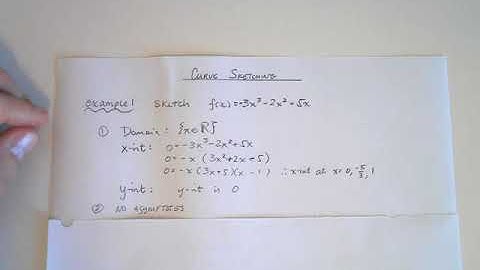 Curve Sketching
example 1 Sketch f(x)=-3x³-2x²+5x
① Domain: {x∈ℝ}
x-int: 0=-3x³-2x²+5x
0=-x(3x²+2x-5)
0=-x(3x+5)(x-1) ∴ x-int at x=0, -5/3, 1
y-int: y-int is 0
② no asymptotes